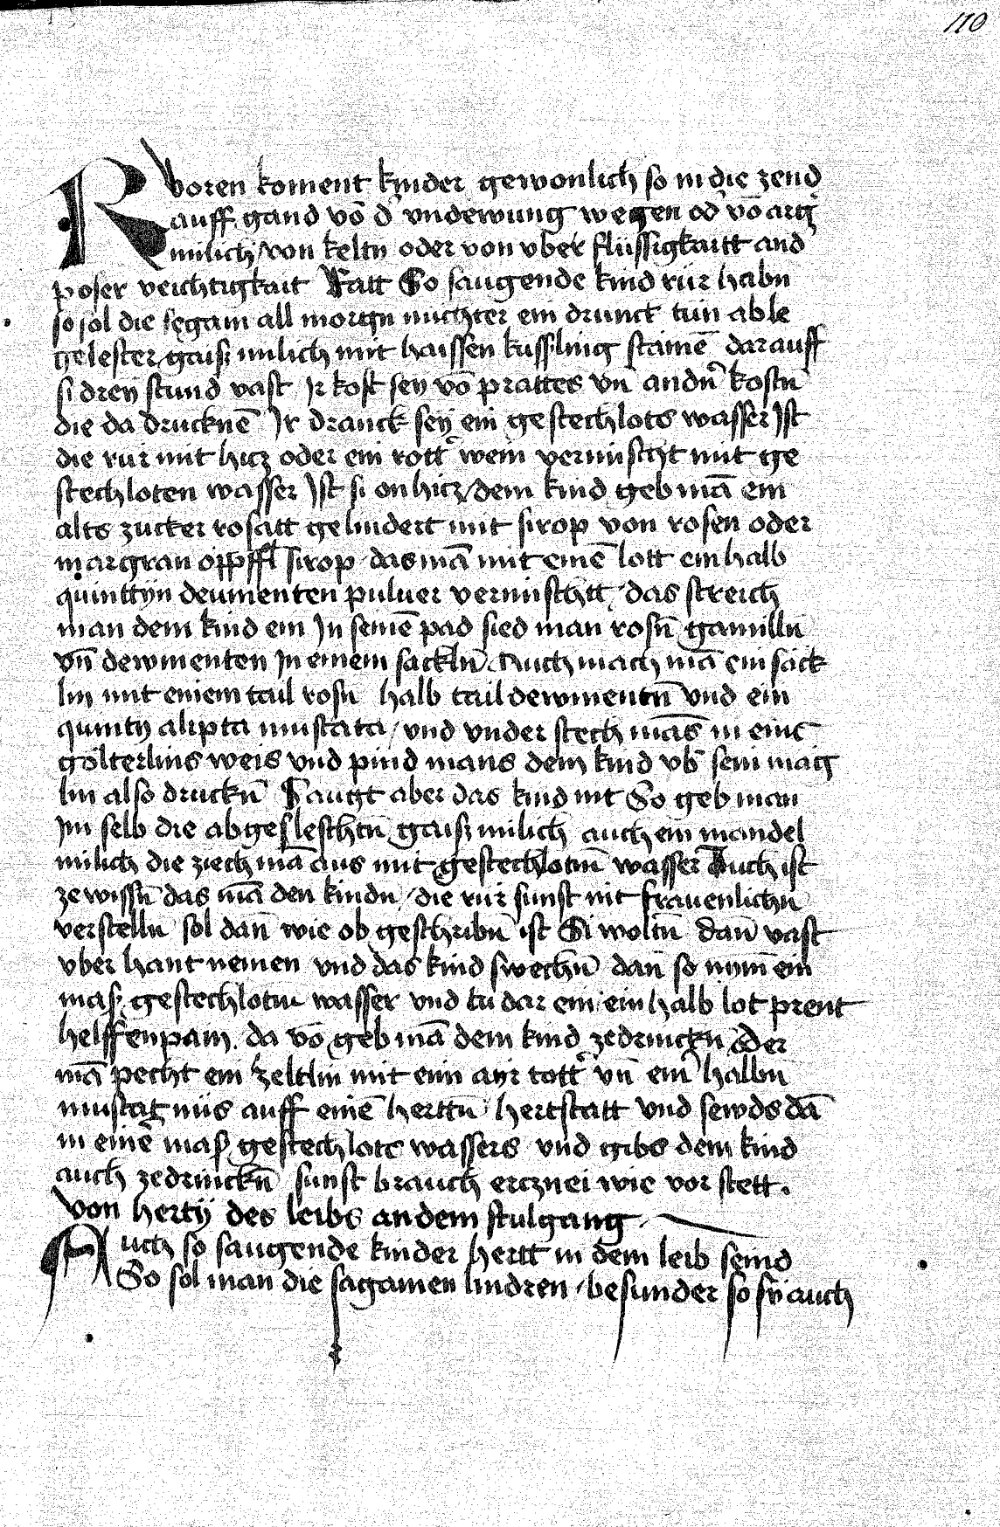 110
Rvoren koment kinder gewonlich so in die zend
auff gand vō d' vndewung wegen od' vō arg'
milich / von keltn oder von vber flüssigkaitt and'
poser veichtigkait Ratt So saugende kind rür habn
so sol die segam all morgn nüchter ein drunck tün able
gelester gaiß milich mit haissen kissling stainē darauff
si dreÿ stund vast Ir kost seÿ vō prattes vn̄ andn' kostn
die da drucknē Ir dranck seÿ ein gestechlots wasser Ist
die rür mit hicz oder ein rott' wein vermischt mit ge
stechloten wasser Ist si on hicz / dem kind geb mā ein
alts zucker rosatt gelindert mit sirop von rosen oder
margran öppffl sirop das mā mit einē lott ein halb
quinttÿn deumenten puluer vermischtt / das streich
man dem kind ein In seinē pad sied man rosn̄ gamilln̄
vn̄ dewmenten In einem sackln̄ Auch mach mā ein säck
lin mit einem tail rosn halb tail dewmentn̄ vnd ein
quintÿ alipta muscata / vnd vnder stech mās in einē
gölterlins weis vnd pind mans dem kind vb' sein mag
lin also druckn̄ Saugt aber das kind nit So geb man
Im selb die abgeleschtn̄ gaiß milich auch ein mandel
milich die ziech mā aus mit gestechlotm̄ wasser Auch ist
ze wissn̄ das mā den kindn / die rür sunst nit frauenlichn̄
verstelln sol dan̄ wie ob geschribn̄ ist Si woltn̄ dan̄ vast
vber hant nemen vnd das kind swechn̄ dan̄ so nym̄ ein
maß gestechlotm wasser vnd tu dar ein / ein halb lot prent
helffenpain da vō geb mā dem kind zedrinckn oder
mā pecht ein zeltlin mit eim ayr tott' vn̄ ein' halbn
muscat nüs auff einē herttn̄ hertstatt vnd sewds dā
in einē maß gestechlots wassers vnd gibs dem kind
auch zedrinckn̄ sunst brauch ercznei wie vor stett.
Von hertÿ des leibs an dem stulgang
Auch so saugende kinder hertt in dem leib seind
So sol man die sagamen lindren / besunder so sÿ auch